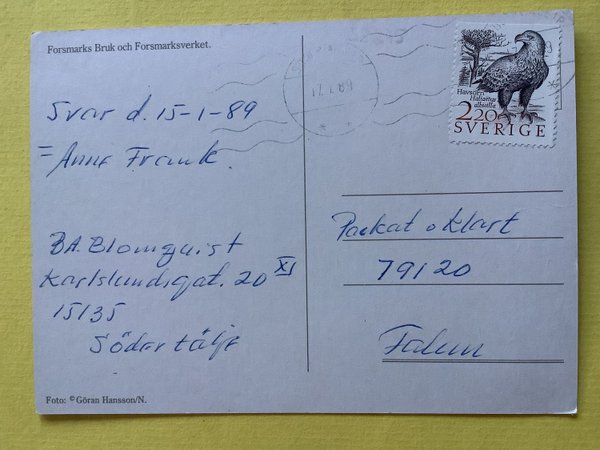 Forsmarks Bruk och Forsmarksverket.
Svar d. 15-1-89
= Anne Frank.
BA. Blomquist
Karlslundsgat. 20 XI
15135
Södertälje
Foto: © Göran Hansson/N.
17.1.89
Havsörn
Haliaetus
albicilla
220
SVERIGE
Packat o Klart
79120
Falun